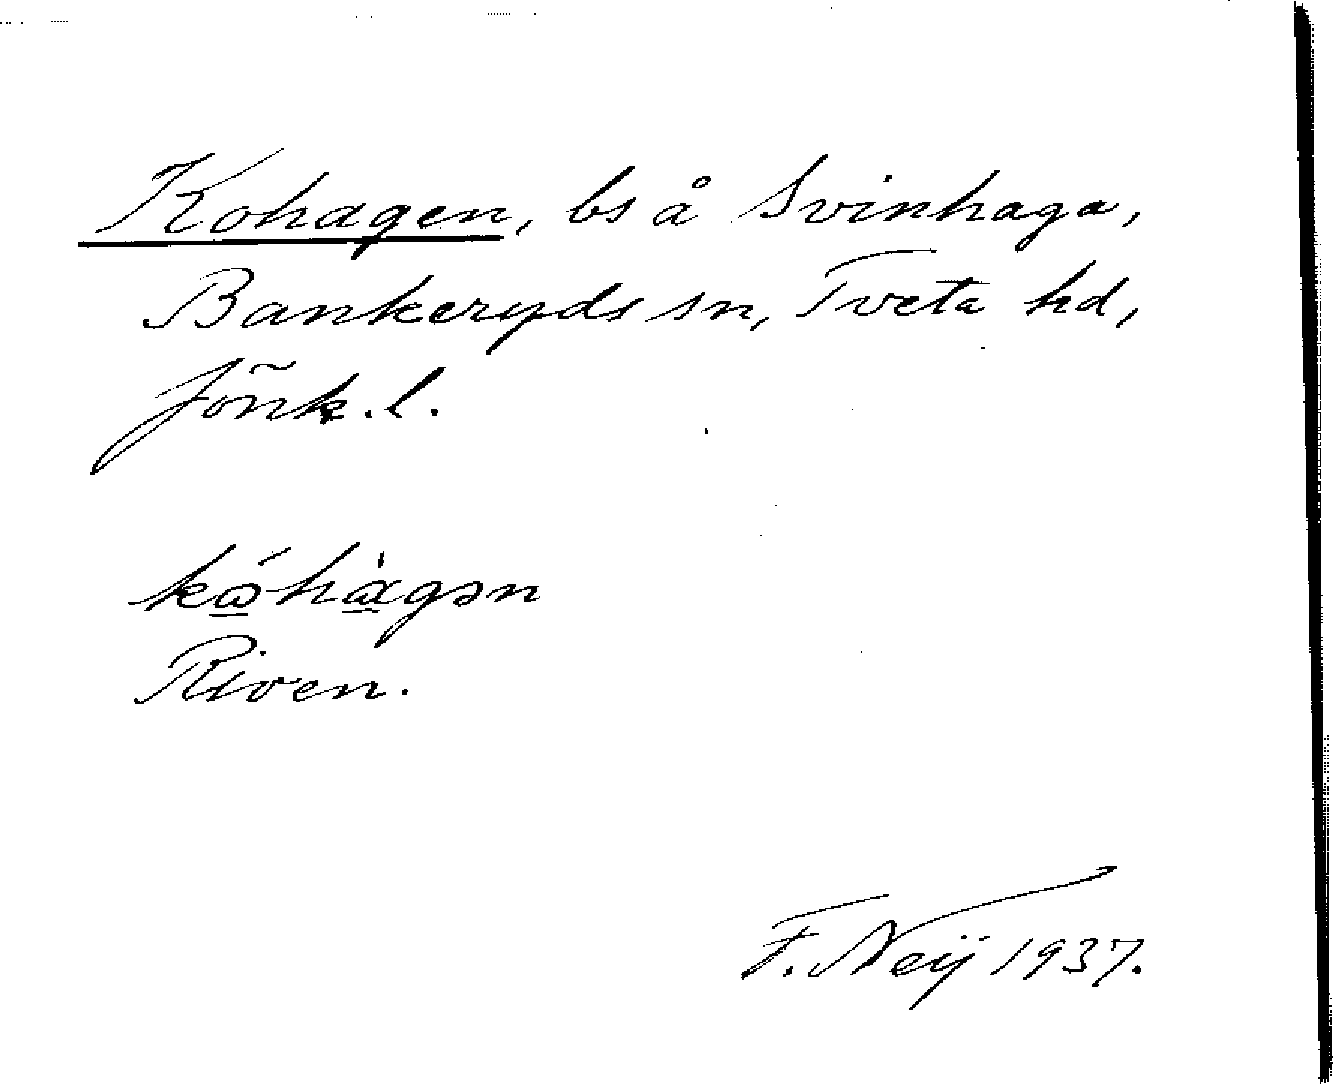 Kohagen, bs å Svinhaga,
Bankeryds sn, Tveta hd,
Jönk. l.
kó̲hà̲gən
Riven.
F. Neij 1937.